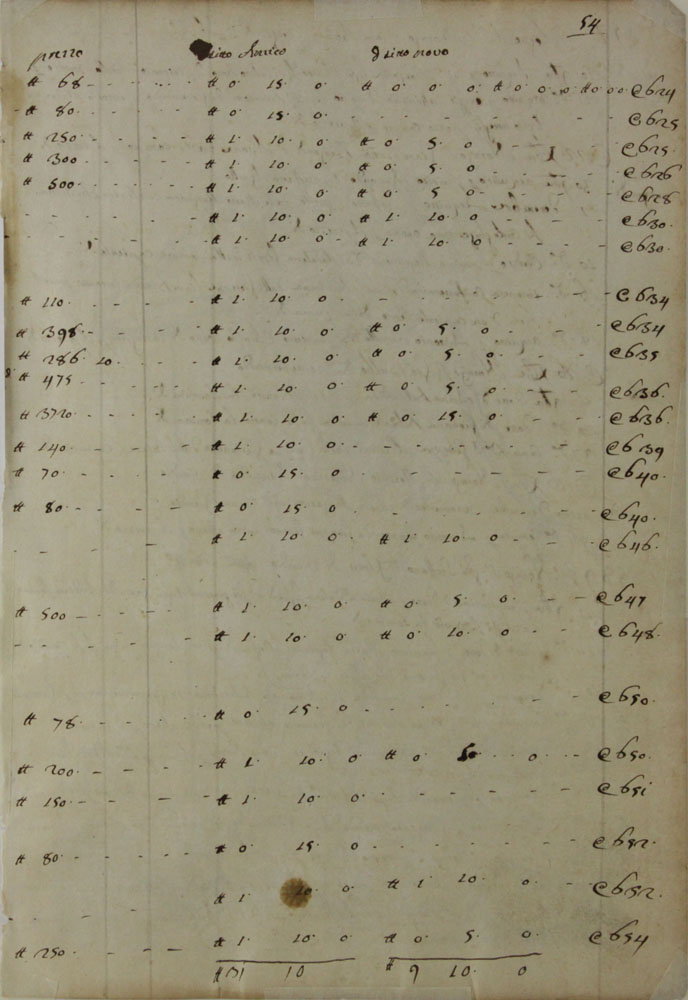 54
prezzo Antico novo
# 68 - - - # 0 15 0 # 0 0 0 # 0 0 0 # 0 0 0 c 624
# 80 - - - # 0 15 0 - - - c 625
# 250 - - - # 1 10 0 # 0 5 0 - - - c 625
# 300 - - - # 1 10 0 # 0 5 0 - - - c 626
# 500 - - - # 1 10 0 # 0 5 0 - - - c 628
- - - # 1 10 0 # 1 10 0 - - - c 630
- - - # 1 10 0 # 1 10 0 - - - c 630
# 110 - - - # 1 10 0 - - - c 634
# 398 - - - # 1 10 0 # 0 5 0 - - c 634
# 286 10 - - - # 1 10 0 # 0 5 0 - - c 635
# 475 - - - # 1 10 0 # 0 5 0 - - c 636
# 3720 - - - # 1 10 0 # 0 15 0 - - c 636
# 140 - - - # 1 10 0 - - - c 639
# 70 - - - # 0 15 0 - - - c 640
# 80 - - - # 0 15 0 - - - c 640
- - - # 1 10 0 # 1 10 0 - - c 646
# 500 - - - # 1 10 0 # 0 5 0 - - c 647
- - - # 1 10 0 # 0 10 0 - - c 648
# 78 - - - # 0 15 0 - - - c 650
# 200 - - - # 1 10 0 # 0 5 0 - - c 650
# 150 - - - # 1 10 0 - - - c 651
# 80 - - - # 0 15 0 - - - c 652
- - - # 1 10 0 # 1 10 0 - c 652
# 250 - - - # 1 10 0 # 0 5 0 - c 654
# 31 10 # 9 10 0